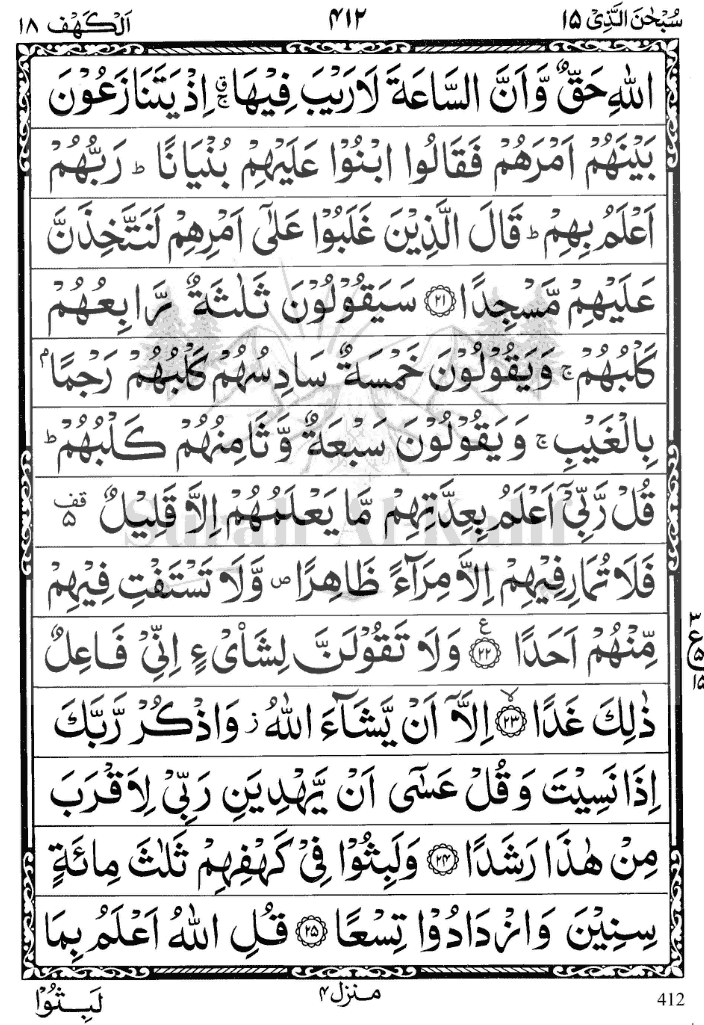 سُبْحٰنَ الَّذِیْۤ ۱۵ ۴۱۲ اَلْكَهْف ۱۸
اللّٰهِ حَقٌّ وَّ اَنَّ السَّاعَةَ لَا رَیْبَ فِیْهَا ۚۗ اِذْ یَتَنَازَعُوْنَ
بَیْنَهُمْ اَمْرَهُمْ فَقَالُوا ابْنُوْا عَلَیْهِمْ بُنْیَانًا ؕ رَبُّهُمْ
اَعْلَمُ بِهِمْ ؕ قَالَ الَّذِیْنَ غَلَبُوْا عَلٰۤی اَمْرِهِمْ لَنَتَّخِذَنَّ
عَلَیْهِمْ مَّسْجِدًا ۲۱ سَیَقُوْلُوْنَ ثَلٰثَةٌ رَّابِعُهُمْ
كَلْبُهُمْ ۚ وَیَقُوْلُوْنَ خَمْسَةٌ سَادِسُهُمْ كَلْبُهُمْ رَجْمًۢا
بِالْغَیْبِ ۚ وَیَقُوْلُوْنَ سَبْعَةٌ وَّثَامِنُهُمْ كَلْبُهُمْ ؕ
قُلْ رَّبِّیْۤ اَعْلَمُ بِعِدَّتِهِمْ مَّا یَعْلَمُهُمْ اِلَّا قَلِیْلٌ قف ۵
فَلَا تُمَارِ فِیْهِمْ اِلَّا مِرَآءً ظَاهِرًا ص وَّلَا تَسْتَفْتِ فِیْهِمْ
مِّنْهُمْ اَحَدًا ۲۲ ع وَلَا تَقُوْلَنَّ لِشَایْءٍ اِنِّیْ فَاعِلٌ
۳ ع ۵ ۱۵
ذٰلِكَ غَدًا ۲۳ لا اِلَّاۤ اَنْ یَّشَآءَ اللّٰهُ ز وَاذْكُرْ رَّبَّكَ
اِذَا نَسِیْتَ وَقُلْ عَسٰۤی اَنْ یَّهْدِیَنِ رَبِّیْ لِاَقْرَبَ
مِنْ هٰذَا رَشَدًا ۲۴ وَلَبِثُوْا فِیْ كَهْفِهِمْ ثَلٰثَ مِائَةٍ
سِنِیْنَ وَازْدَادُوْا تِسْعًا ۲۵ قُلِ اللّٰهُ اَعْلَمُ بِمَا
لَبِثُوْا منزل ۴ 412